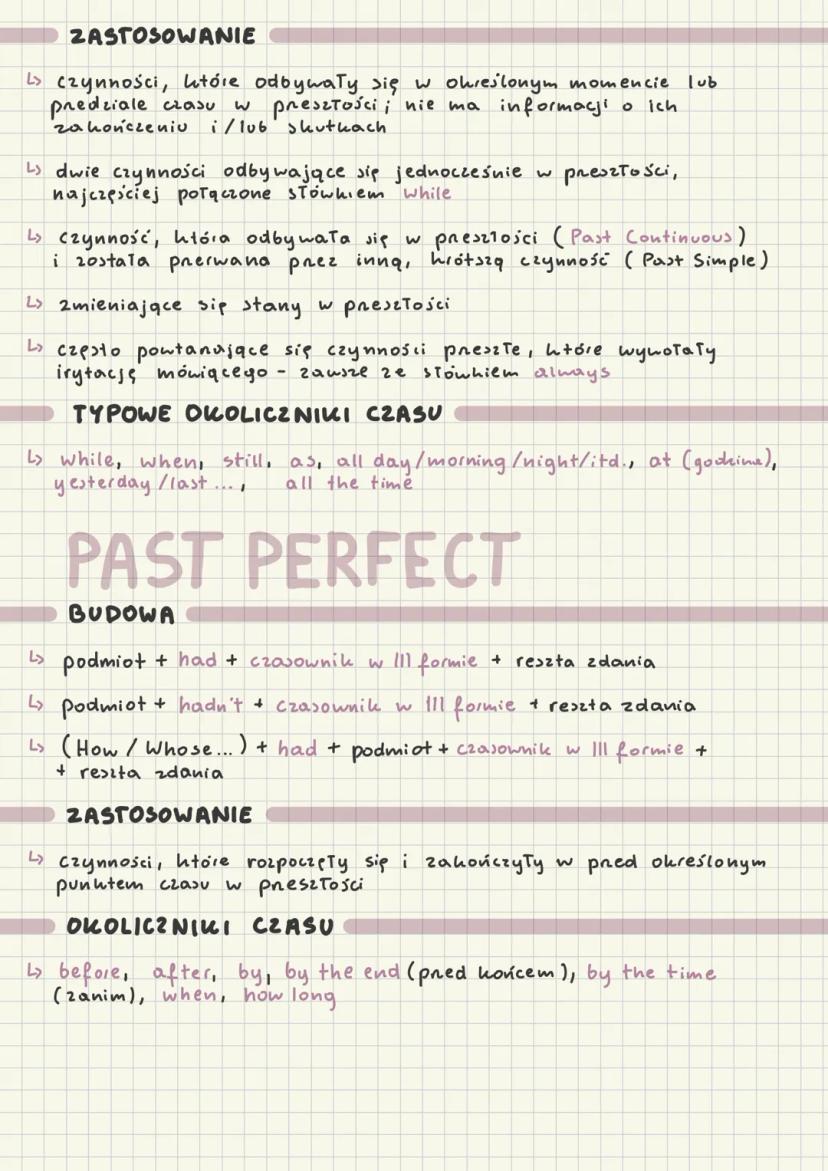 ZASTOSOWANIE
↳ czynności, które odbywały się w określonym momencie lub
przedziale czasu w przeszłości; nie ma informacji o ich
zakończeniu i/lub skutkach
↳ dwie czynności odbywające się jednocześnie w przeszłości,
najczęściej połączone słówkiem while
↳ czynność, która odbywała się w przeszłości (Past Continuous)
i została przerwana przez inną, krótszą czynność (Past Simple)
↳ zmieniające się stany w przeszłości
↳ często powtarzające się czynności przeszłe, które wywołały
irytację mówiącego - zawsze ze słówkiem always
TYPOWE OKOLICZNIKI CZASU
↳ while, when, still, as, all day/morning/night/itd., at (godzina),
yesterday/last..., all the time
PAST PERFECT
BUDOWA
↳ podmiot + had + czasownik w III formie + reszta zdania
↳ podmiot + hadn't + czasownik w III formie + reszta zdania
↳ (How / Whose...) + had + podmiot + czasownik w III formie +
+ reszta zdania
ZASTOSOWANIE
↳ czynności, które rozpoczęły się i zakończyły w przed określonym
punktem czasu w przeszłości
OKOLICZNIKI CZASU
↳ before, after, by, by the end (przed końcem), by the time
(zanim), when, how long